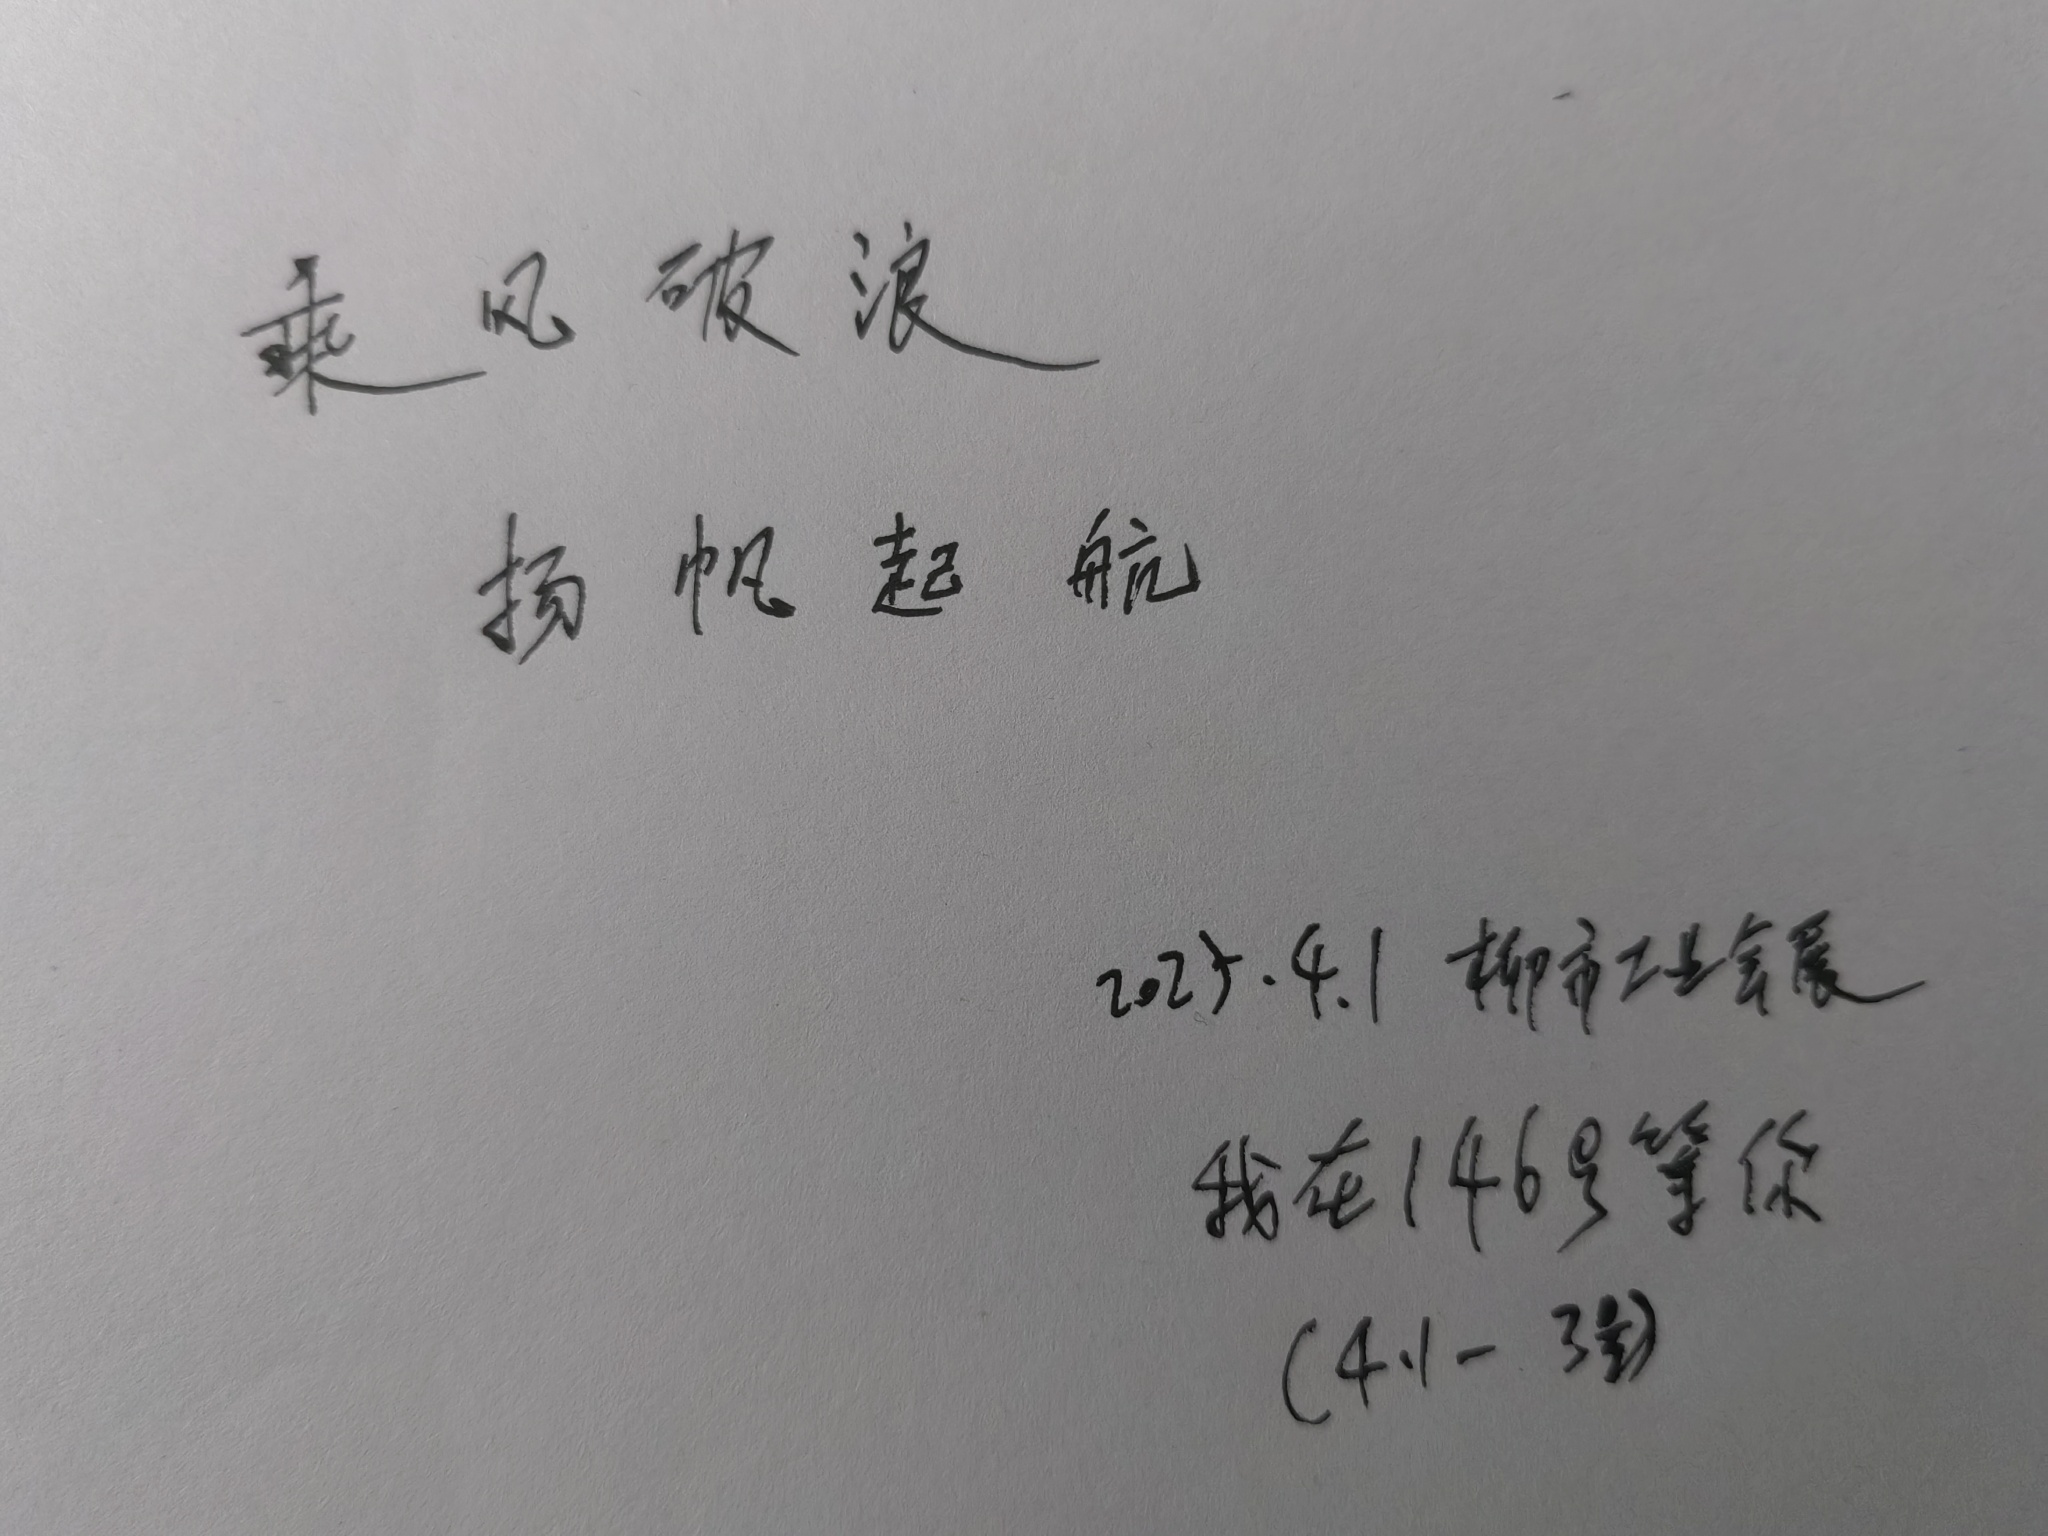 乘风破浪
扬帆起航
2025.4.1 柳市工业会展
我在146号等你
(4.1-3号)